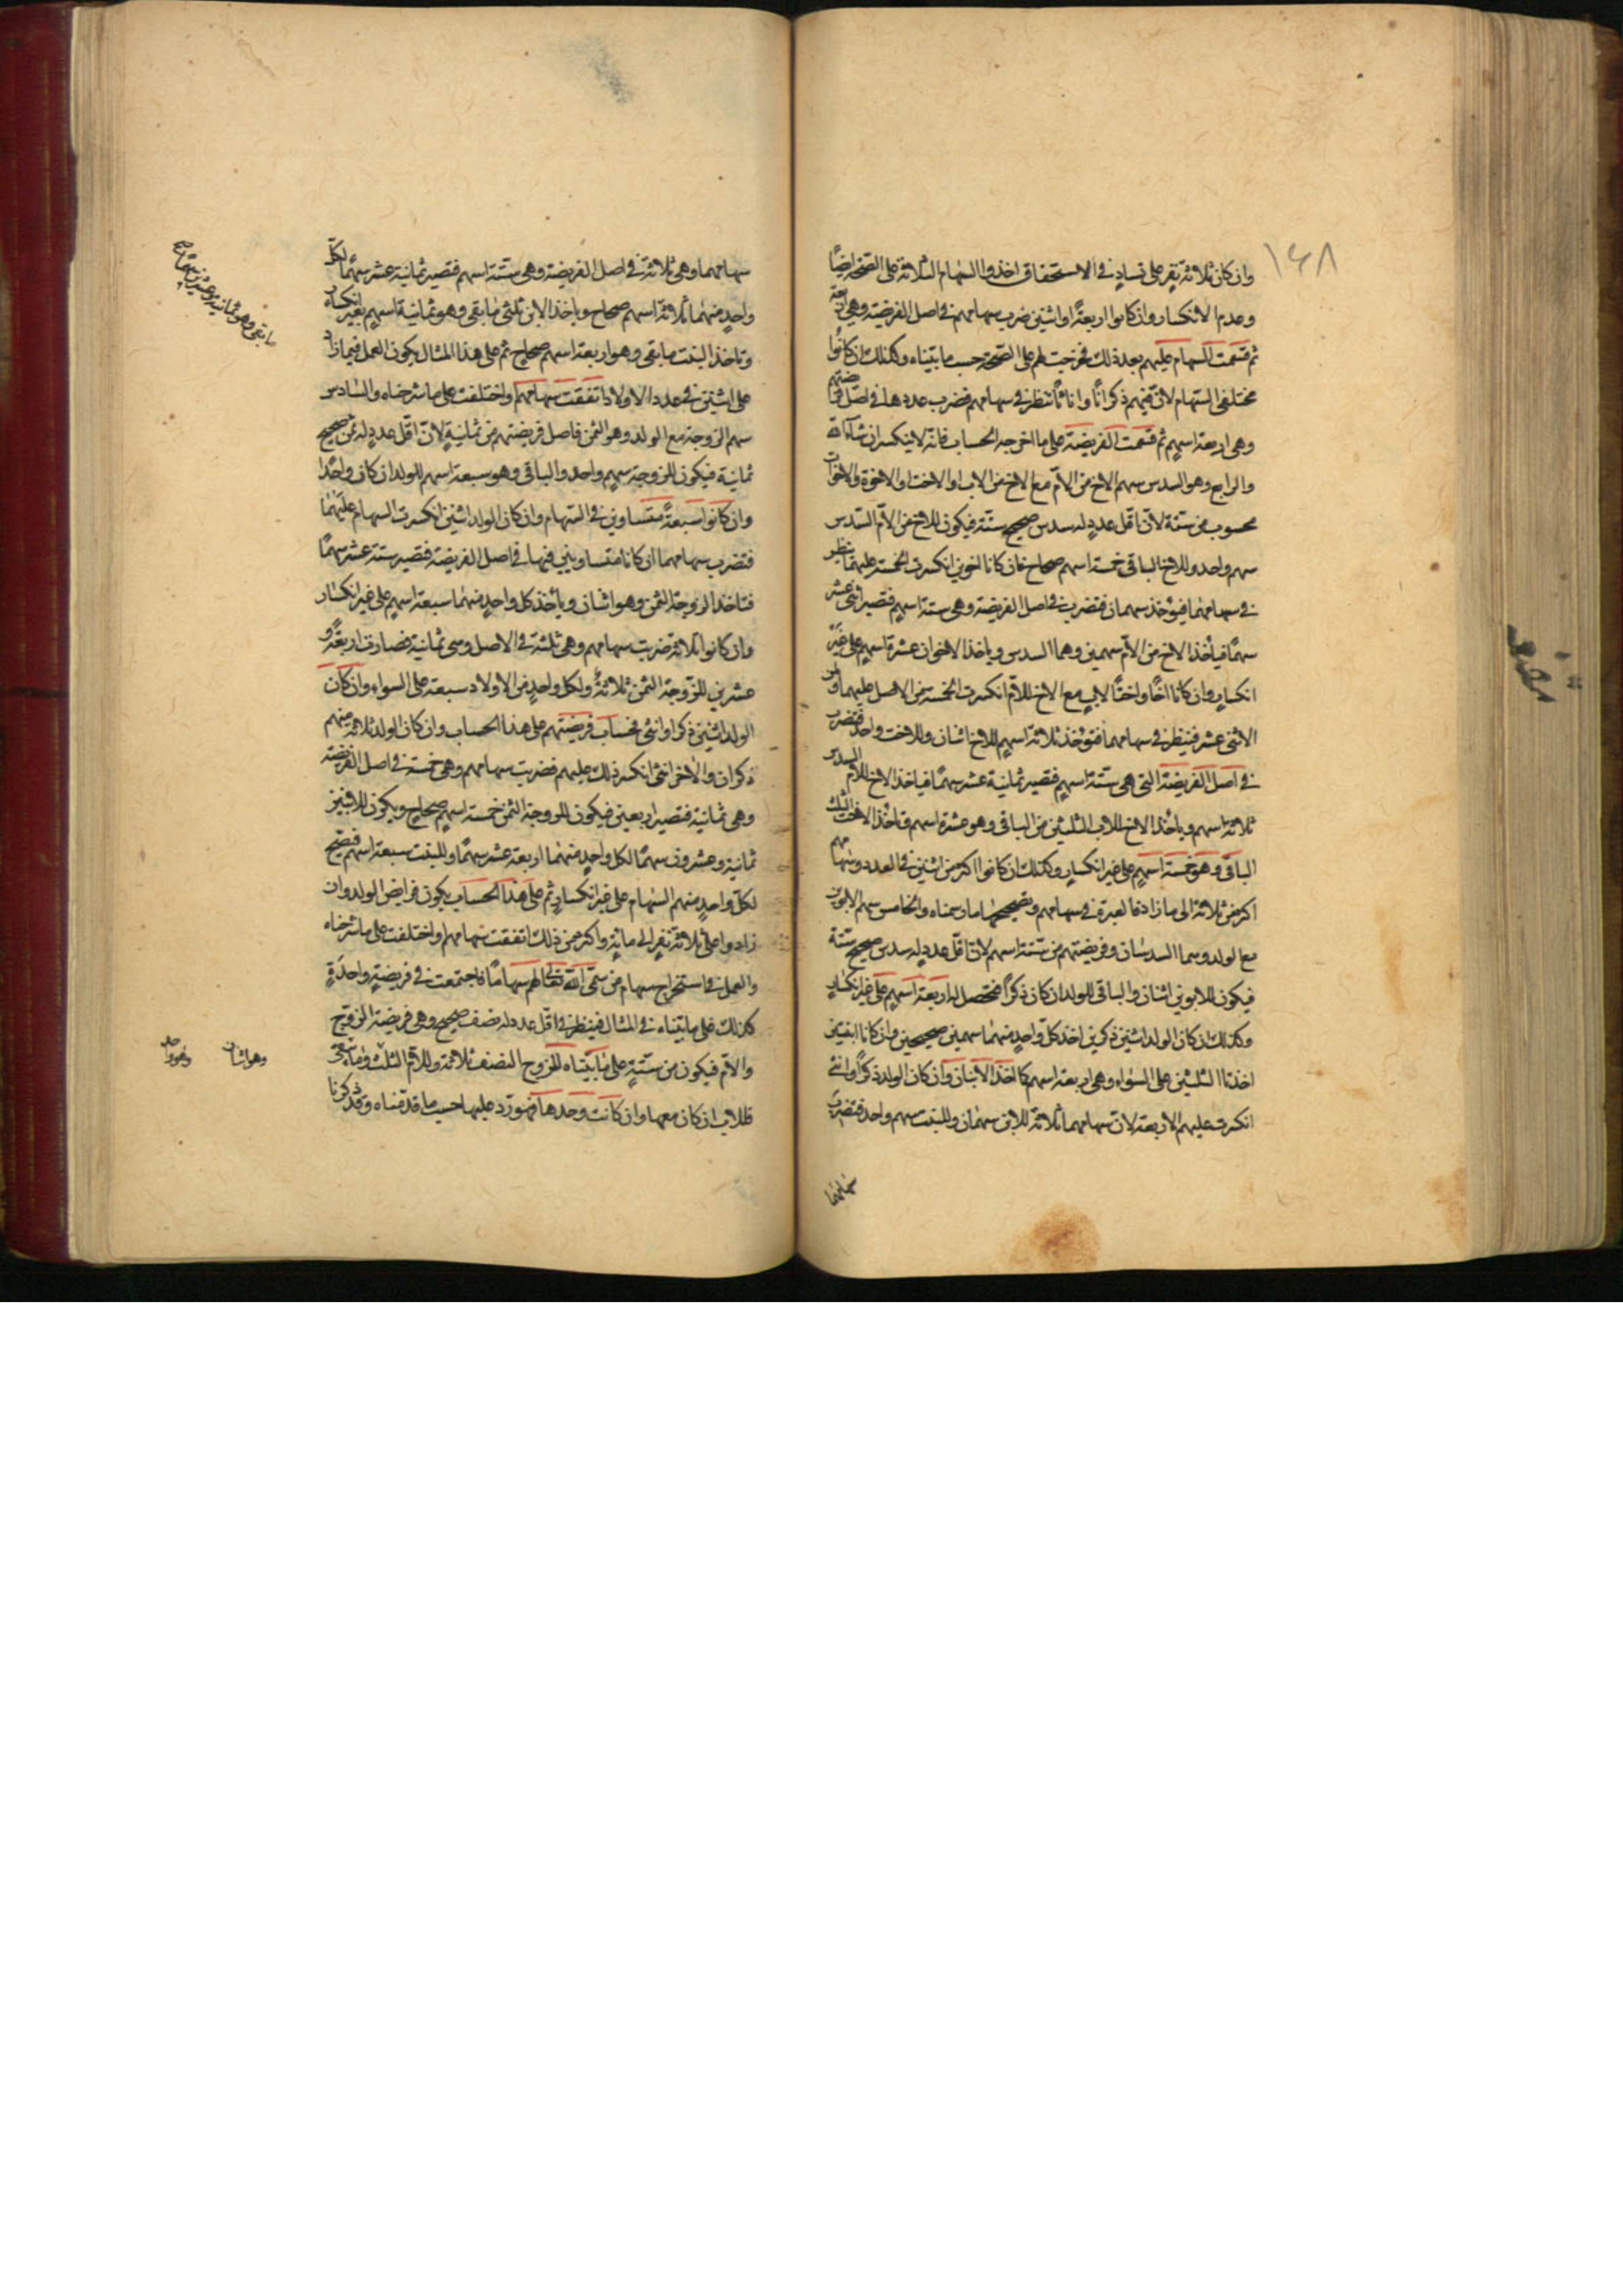 ١٤٨
وان كان ثلاثة نفر على تساو في الاستحقاق اخذوا السهام الثلاثة على الصحة ايضًا
وعدم الانكسار وان كانوا اربعة او اثنين ضرب سهامهم في اصل الفريضة وهي اربعة
ثم قسمت السهام عليهم بعد ذلك فخرجت لهم على الصحة حسب ما بيناه وكذلك ان كانوا
مختلفي السهام لان فيهم ذكرانًا واناثًا تنظر في سهامهم فضرب عددها في اصل فريضتهم
وهي اربعة اسهم ثم قسمت الفريضة على ما اخرجه الحساب فانه لا ينكسر ان شاء الله
والرابع وهو السدس سهم الاخ من الام مع الاخ من الاب او الاخت او الاخوة والاخوات
محسوب من ستة لان اقل عدد له سدس صحيح ستة فيكون للاخ من الام السدس
سهم واحد وللاخ الباقي خمسة اسهم صحاح فان كانا اخوين انكسرت الخمسة عليهما فينظر
في سهامهما فيؤخذ سهمان فتضرب في اصل الفريضة وهي ستة اسهم فتصير اثنى عشر
سهمًا فيأخذ الاخ من الام سهمين وهما السدس وياخذ الاخوان عشرة اسهم على غير
انكسار وان كانا اخًا واختًا لاب مع الاخ للام انكسرت الخمسة من الاصل عليهما ومن
الاثنى عشر فينظر في سهامهما فتؤخذ ثلاثة اسهم للاخ اثنان وللاخت واحد فتضرب
في اصل الفريضة التي هي ستة اسهم فتصير ثمانية عشر سهمًا فياخذ الاخ للام السدس
ثلاثة اسهم وياخذ الاخ للاب الثلثين من الباقي وهو عشرة اسهم وتاخذ الاخت الثلث
الباقي وهو خمسة اسهم على غير انكسار وكذلك ان كانوا اكثر من اثنين في العدد وسهامهم
اكثر من ثلاثة الى ما زاد فالعبرة في سهامهم وتصحيحها ما رسمناه والخامس سهم الابوين
مع الولد وهما السدسان وفريضتهم من ستة اسهم لان اقل عدد له سدس صحيح ستة
فيكون للابوين اثنان والباقي للولد ان كان ذكرًا فتحصل له اربعة اسهم على غير انكسار
وكذلك ان كان الولد اثنين ذكرين اخذ كل واحد منهما سهمين صحيحين وان كانا ابنتين
اخذتا الثلثين على السواء وهي اربعة اسهم كما اخذ الابنان وان كان الولد ذكرًا وانثى
انكسرت عليهم الاربعة لان سهامهما ثلاثة للابن سهمان وللبنت سهم واحد فتضرب
سهامهما
سهامهما وهي ثلاثة في اصل الفريضة وهي ستة اسهم فتصير ثمانية عشر سهمًا لكل
واحد منهما ثلاثة اسهم صحاح وياخذ الابن ثلثي ما بقي وهو ثمانية اسهم بغير انكسار
وتاخذ البنت ما بقي وهو اربعة اسهم صحاح ثم على هذا المثال يكون العمل فيما زاد
على اثنين في عدد الاولاد اتفقت سهامهم او اختلفت على ما شرحناه والسادس
سهم الزوجة مع الولد وهو الثمن فاصل فريضتهم من ثمانية لان اقل عدد له ثمن صحيح
ثمانية فيكون للزوجة سهم واحد والباقي وهو سبعة اسهم للولد ان كان واحدًا
وان كانوا سبعة متساوين في السهام وان كان الولد اثنين انكسرت السهام عليهما
فتضرب سهامهما ان كانا متساويين فيها في اصل الفريضة فتصير ستة عشر سهمًا
فتاخذ الزوجة الثمن وهو اثنان ويأخذ كل واحد منهما سبعة اسهم على غير انكسار
وان كانوا ثلاثة ضربت سهامهم وهي ثلثة في الاصل وهي ثمانية فصارت اربعة و
عشرين للزوجة الثمن ثلاثة ولكل واحد من الاولاد سبعة على السواء وان كان
الولد اثنين ذكرا وانثى فحساب فريضتهم على هذا الحساب وان كان الولد ثلاثة منهم
ذكران والاخر انثى انكسر ذلك عليهم فضربت سهامهم وهي خمسة في اصل الفريضة
وهي ثمانية فتصير اربعين فيكون للزوجة الثمن خمسة اسهم صحاح ويكون للابنين
ثمانية وعشرون سهمًا لكل واحد منهما اربعة عشر سهمًا وللبنت سبعة اسهم فتصح
لكل واحد منهم السهام على غير انكسار ثم على هذا الحساب يكون فرايض الولد وان
زادوا على ثلاثة نفر الى مائة واكثر من ذلك اتفقت سهامهم او اختلفت على ما شرحناه
والعمل في استخراج سهام من سمى الله تعالى لهم سهامًا فاجتمعت في فريضة واحدة
كذلك على ما بيناه في المثال فينظر في اقل عدد له نصف صحيح وهي فريضة الزوج
والام فيكون من ستة على ما بيناه للزوج النصف ثلاثة وللام الثلث وما بقي
فللاب ان كان معها وان كانت وحدها فهو رد عليها حسب ما قدمناه وقد ذكرنا
وهو اثنان
وهو واحد